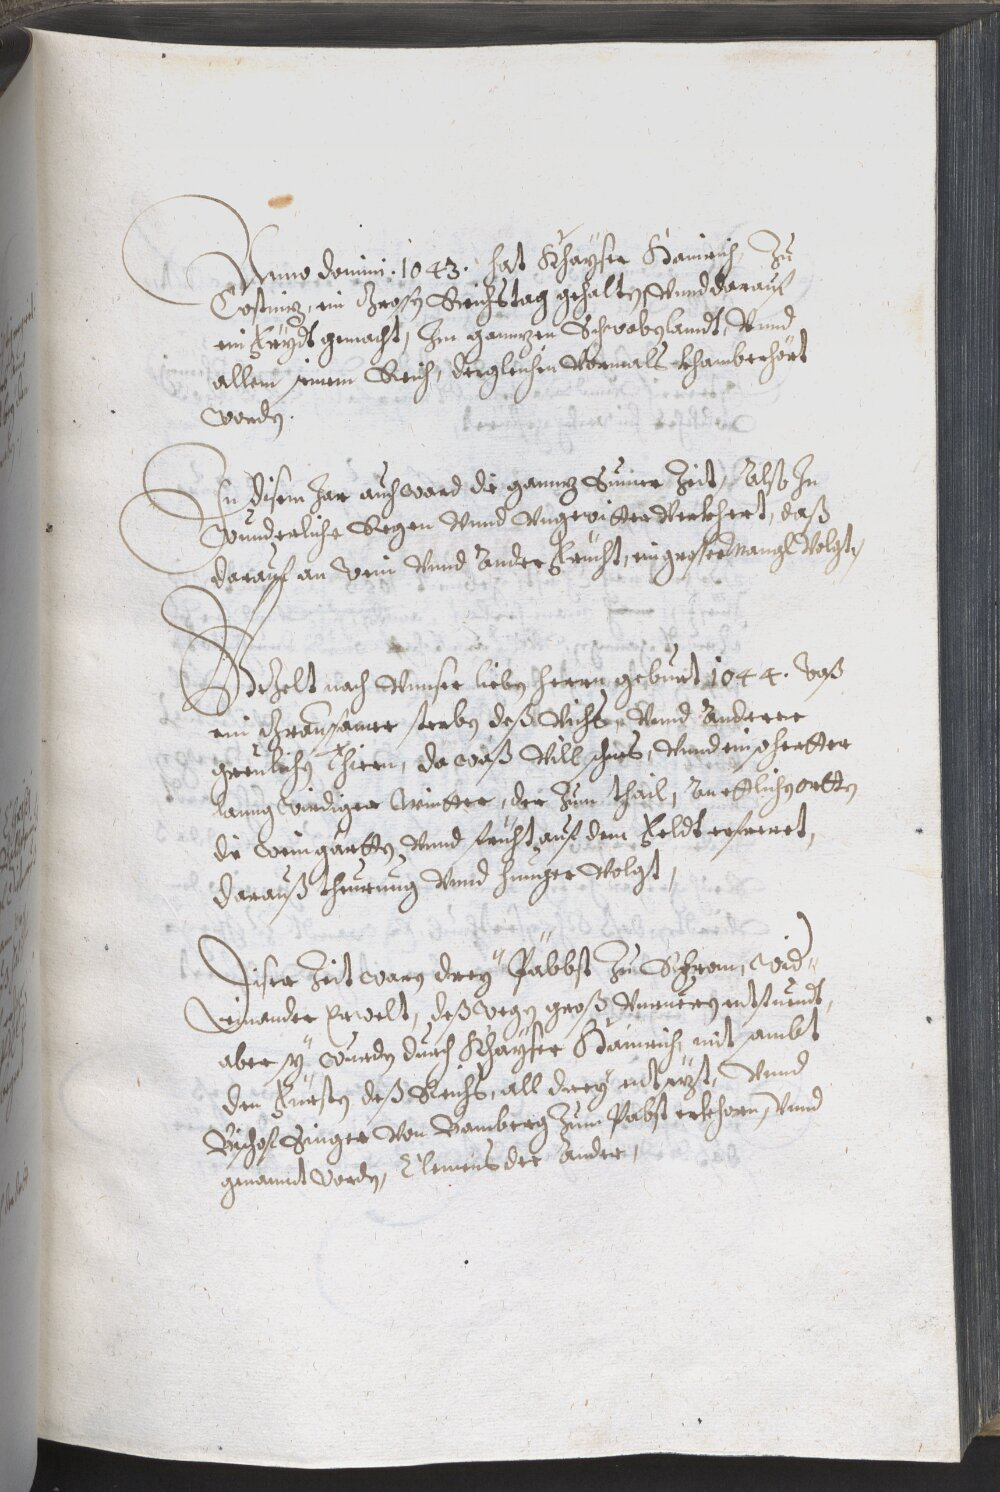 Anno domini .1043. hat Khayser Hainrich, Zu
Costnitz, ein Grosz Reichstag gehalten Vnnd darauf
ein Frydt gemacht, Im ganntzen Schwobenlandt, Vnnd
allem seinem Reich, dergleichen Vormals khamb erhört
worden.
In disem Jar auch ward die ganntz Sumer Zeit, Also In
wunderliche Regen Vnnd Vngewitter Verkhert, daß
darauf an Wein Vnnd Ander Frücht, ein groser Mangl Volgte,
Gezelt nach Vnnser lieben herrn geburt 1044. waß
ein Grausamer sterben deß Vichs, Vnnd Anderer
greulichen Thiern, da waß Vill schnes, Vnnd ein herter
lanng wirdiger Winter, der Zum thail, An ettlichen ortten
die Weingärtten Vnnd frücht auf dem Feldt erfreret,
darauß theurung Vnnd hunger Volgt,
Diser Zeit waren drey Päbbst Zu Rom, wid-
einander Erwelt, deß wegen groß Vnruen entstuendt,
aber sy wurden durch Khayser Hainrich mit sambt
den Fürsten deß Reichs, all drey entsezt, Vnnd
Bischof Singer Von Bamberg Zum Pabst erkhorn, Vnnd
genanndt worden, Clemens der Ander,